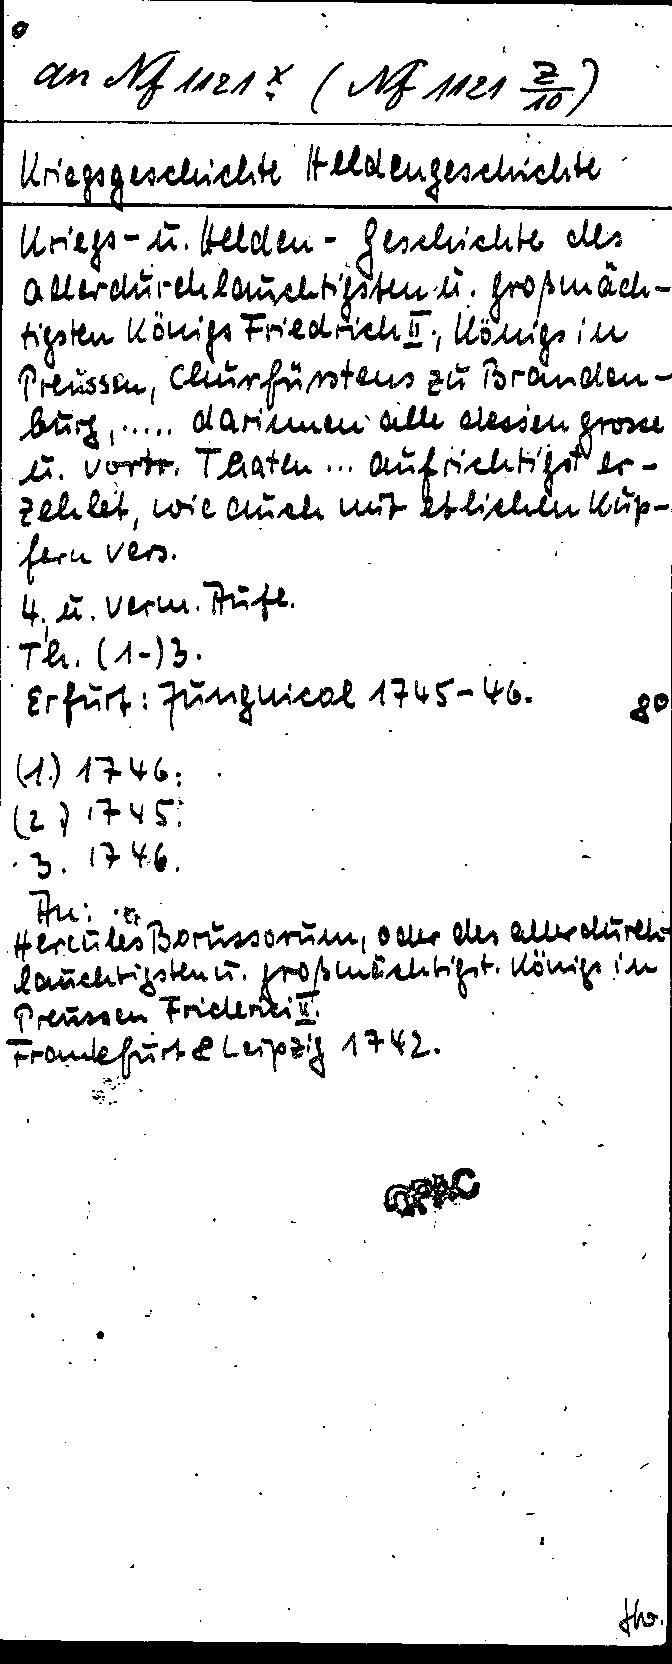 an Nf 1121 x (Nf 1121 Z/10)
Kriegsgeschichte Heldengeschichte
Kriegs- u. Helden-Geschichte des
allerdurchlauchtigsten u. großmäch-
tigsten Königs Friedrich II., Königs in
Preussen, Churfürstens zu Branden-
burg, ..... darinnen alle dessen grosse
u. vortr. Thaten ... aufrichtigst er-
zehlet, wie auch mit etlichen Kup-
fern vers.
4. u. verm. Aufl.
Th. (1-)3.
Erfurt: Jungnicol 1745-46. 8°
(1.) 1746.
(2.) 1745.
3. 1746.
An:
Hercules Borussorum, oder des allerdurch-
lauchtigsten u. großmächtigst. Königs in
Preussen Friderici II.
Frankfurt & Leipzig 1742.
OPAC